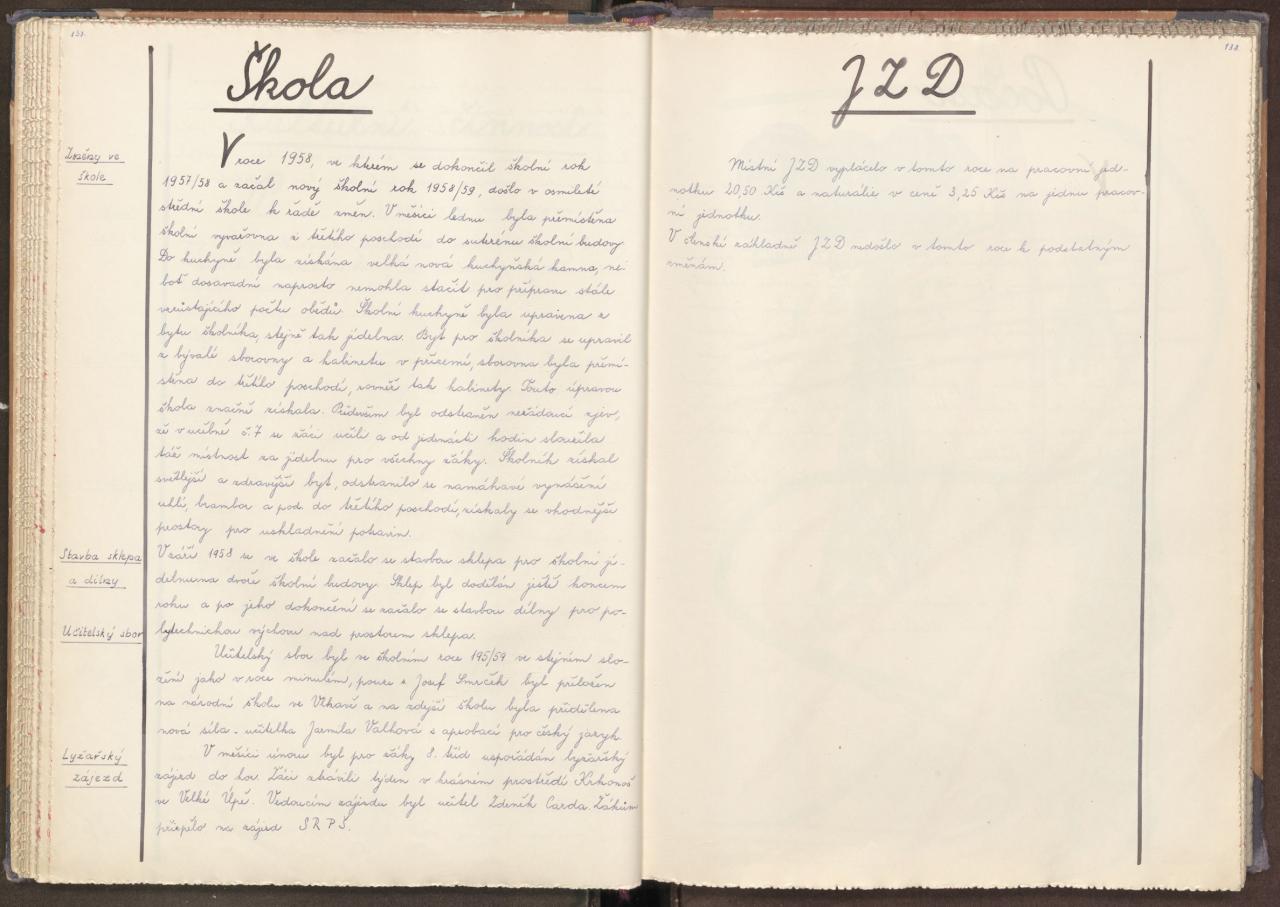 Škola
Změny ve
škole
V roce 1958, ve kterém se dokončil školní rok
1957/58 a začal nový školní rok 1958/59, došlo v osmileté
střední škole k řadě změn. V měsíci lednu byla přemístěna
školní vyvařovna z třetího poschodí do suterénu školní budovy.
Do kuchyně byla získána velká nová kuchyňská kamna, ne-
boť dosavadní naprosto nemohla stačit pro přípravu stále
vzrůstajícího počtu obědů. Školní kuchyně byla upravena z
bytu školníka, stejně tak jídelna. Byt pro školníka se upravil
z bývalé sborovny a kabinetu v přízemí, sborovna byla přemí-
stěna do třetího poschodí, rovněž tak kabinety. Touto úpravou
škola značně získala. Především byl odstraněn nežádoucí zjev,
že v učebně č. 7 se žáci učili a od jedenácti hodin sloužila
táž místnost za jídelnu pro všechny žáky. Školník získal
světlejší a zdravější byt, odstranilo se namáhavé vynášení
uhlí, brambor a pod. do třetího poschodí, získaly se vhodnější
prostory pro uskladnění potravin.
Stavba sklepa
a dílny
V září 1958 se ve škole začalo se stavbou sklepa pro školní jí-
delnu na dvoře školní budovy. Sklep byl dodělán ještě koncem
roku a po jeho dokončení se začalo se stavbou dílny pro po-
lytechnickou výchovu nad prostorem sklepa.
Učitelský sbor
Učitelský sbor byl ve školním roce 195/59 ve stejném slo-
žení jako v roce minulém, pouze s. Josef Smrček byl přeložen
na národní školu ve a na zdejší školu byla přidělena
nová síla - učitelka Jarmila Valhová s aprobací pro český jazyk.
Lyžařský
zájezd
V měsíci únoru byl pro žáky 8. tříd uspořádán lyžařský
zájezd do hor. Žáci strávili týden v krásném prostředí Krkonoš
ve Velké Úpě. Vedoucím zájezdu byl učitel Zdeněk Carda. Žákům
přispělo na zájezd SRPŠ.
JZD
Místní JZD vyplácelo v tomto roce na pracovní jed-
notku 20,50 Kčs a naturálie v ceně 3,25 Kčs na jednu pracov-
ní jednotku.
V členské základně JZD nedošlo v tomto roce k podstatným
změnám.